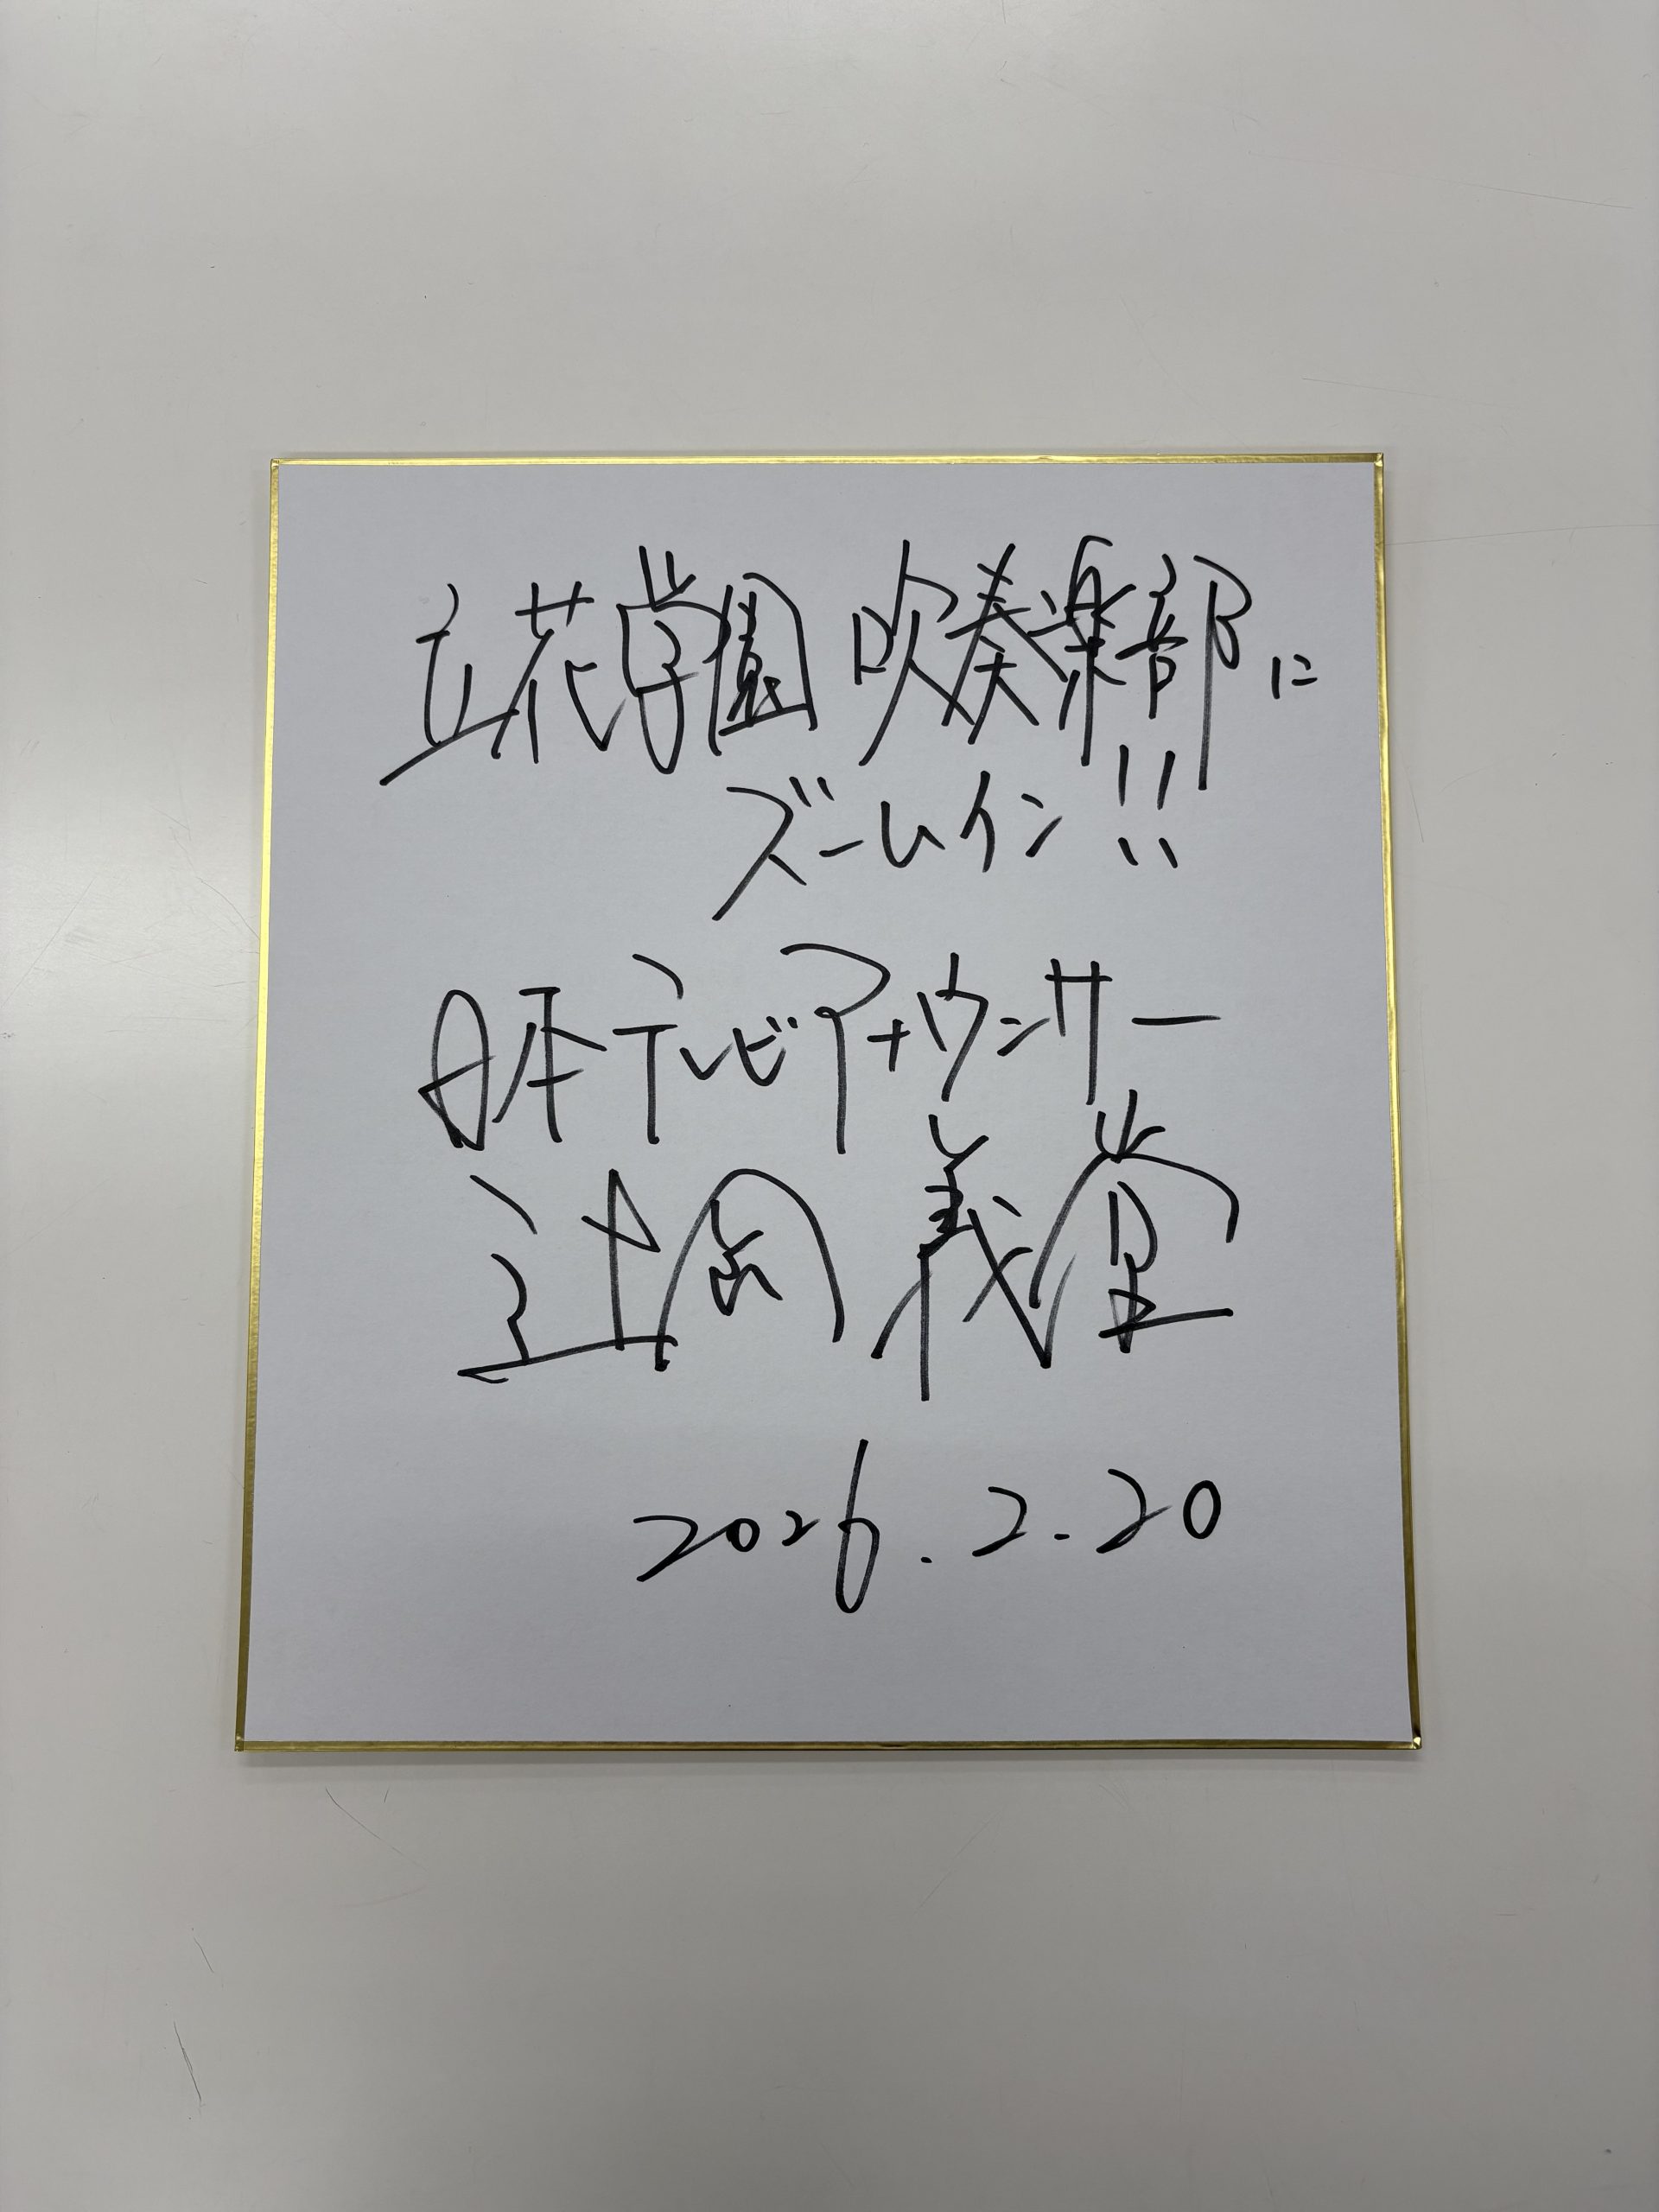 立花学園 吹奏楽部に
ズームイン!!
日本テレビアナウンサー
辻岡義堂
2026.2.20